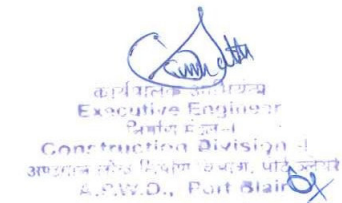 कार्यपालक अभियन्ता
Executive Engineer
निर्माण मंडल-I
Construction Division -I
अण्डमान लोक निर्माण विभाग, पोर्ट ब्लेयर
A.P.W.D., Port Blair